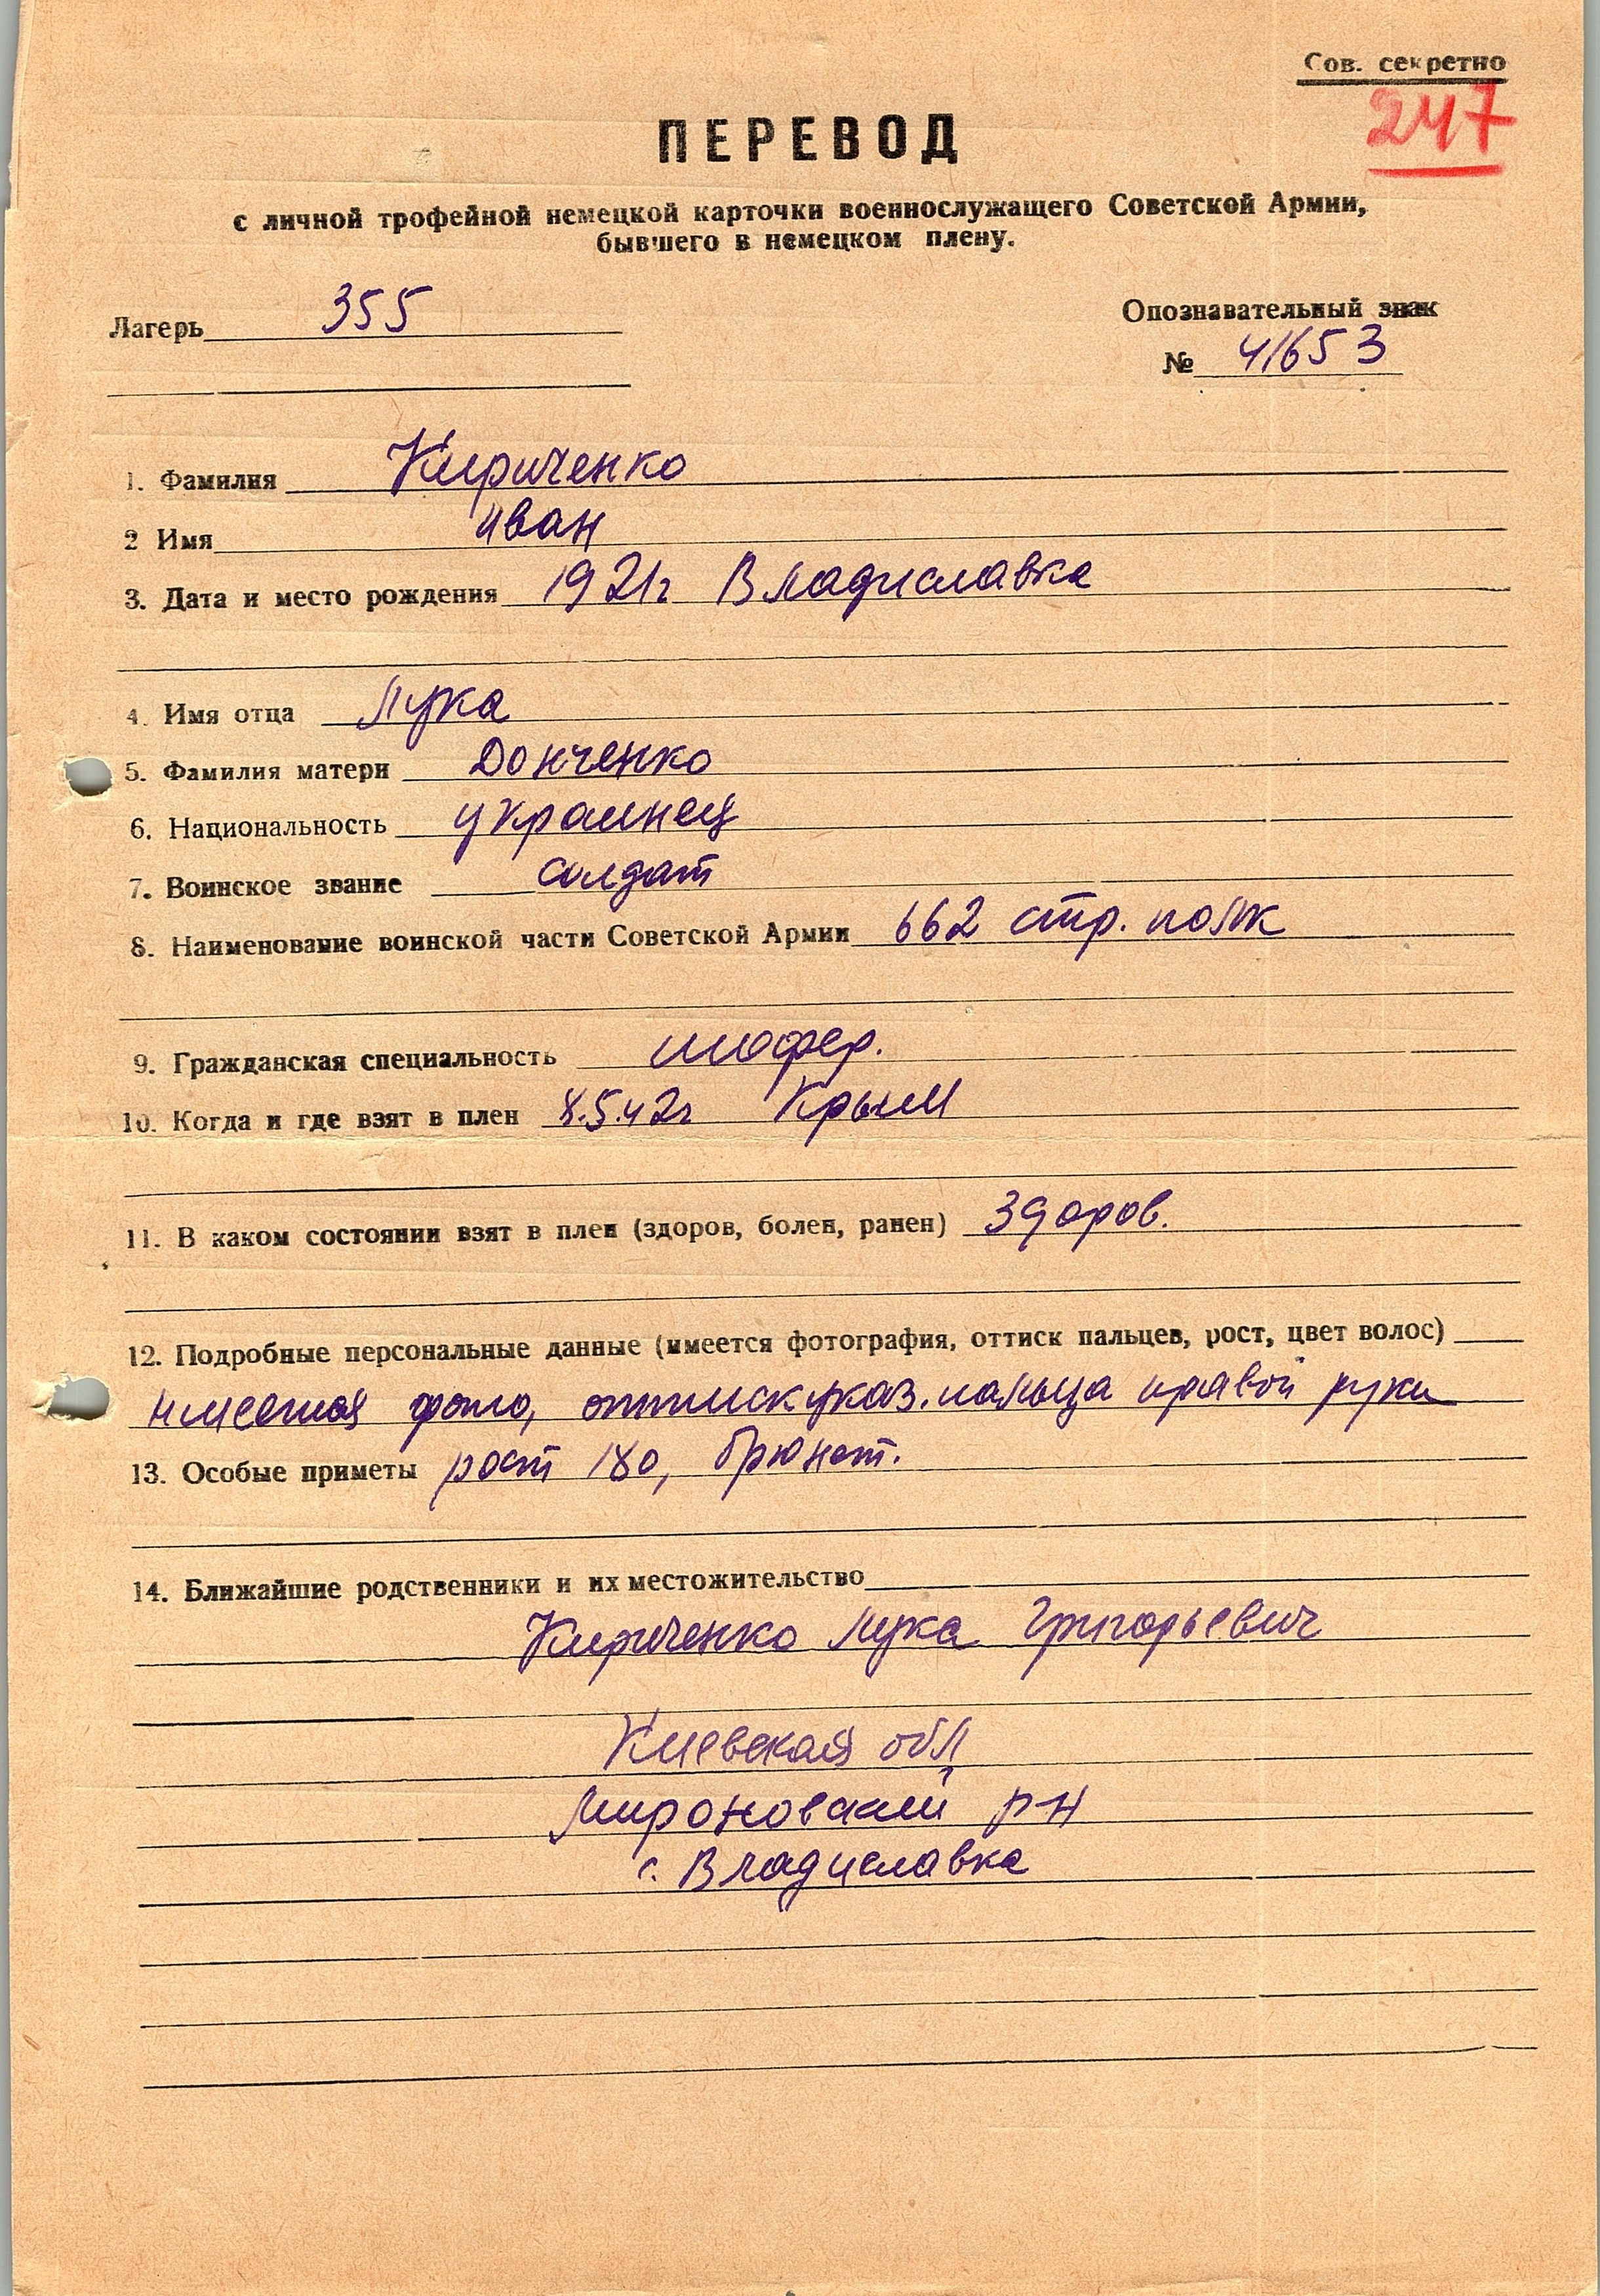 Сов. секретно
247
ПЕРЕВОД
с личной трофейной немецкой карточки военнослужащего Советской Армии,
бывшего в немецком плену.
Лагерь 355
Опознавательный знак
№ 41653
1. Фамилия Кириченко
2 Имя Иван
3. Дата и место рождения 1921г Владиславка
4. Имя отца Лука
5. Фамилия матери Донченко
6. Национальность украинец
7. Воинское звание солдат
8. Наименование воинской части Советской Армии 662 стр. полк
9. Гражданская специальность шофер.
10. Когда и где взят в плен 8.5.42г Крым
11. В каком состоянии взят в плен (здоров, болен, ранен) здоров.
12. Подробные персональные данные (имеется фотография, оттиск пальцев, рост, цвет волос)
имеется фото, оттиск указ. пальца правой руки
13. Особые приметы рост 180, брюнет.
14. Ближайшие родственники и их местожительство
Кириченко Лука Григорьевич
Киевская обл
Мироновский р-н
с. Владиславка